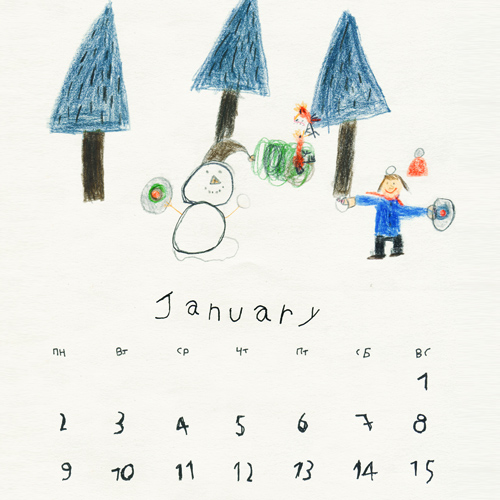 January
ПН Вт СР Чт Пт СБ ВС
1
2 3 4 5 6 7 8
9 10 11 12 13 14 15